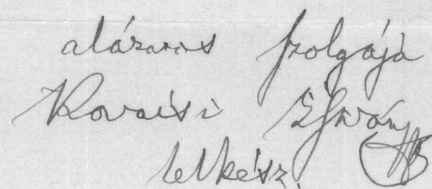 alázatos szolgája
Kovácsi István
lelkész.